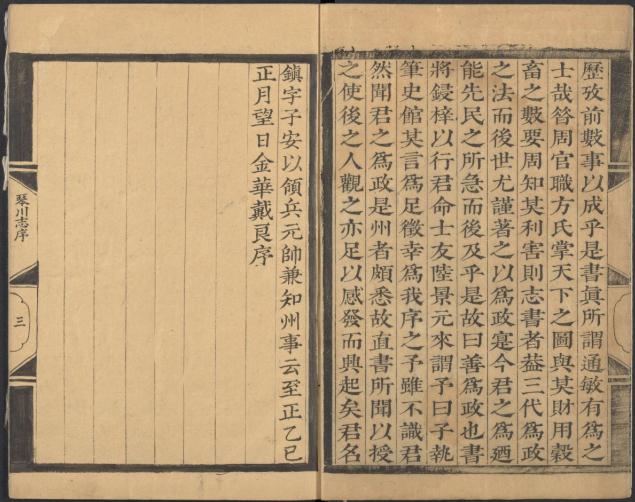 歷攷前數事以成乎是書眞所謂通敏有爲之
士哉昝周官職方氏掌天下之圖與其財用榖
畜之數要周知其利害則志書者葢三代爲政
之法而後世尤謹著之以爲政寔今君之爲廼
能先民之所急而後及乎是故曰善爲政也書
將鋟梓以行君命士友陸景元來謂予曰子執
筆史館其言爲足徵幸爲我序之予雖不識君
然聞君之爲政是州者頗悉故直書所聞以授
之使後之人觀之亦足以感發而興起矣君名
鎮字子安以領兵元帥兼知州事云至正乙巳
正月望日金華戴良序
琴川志序
三